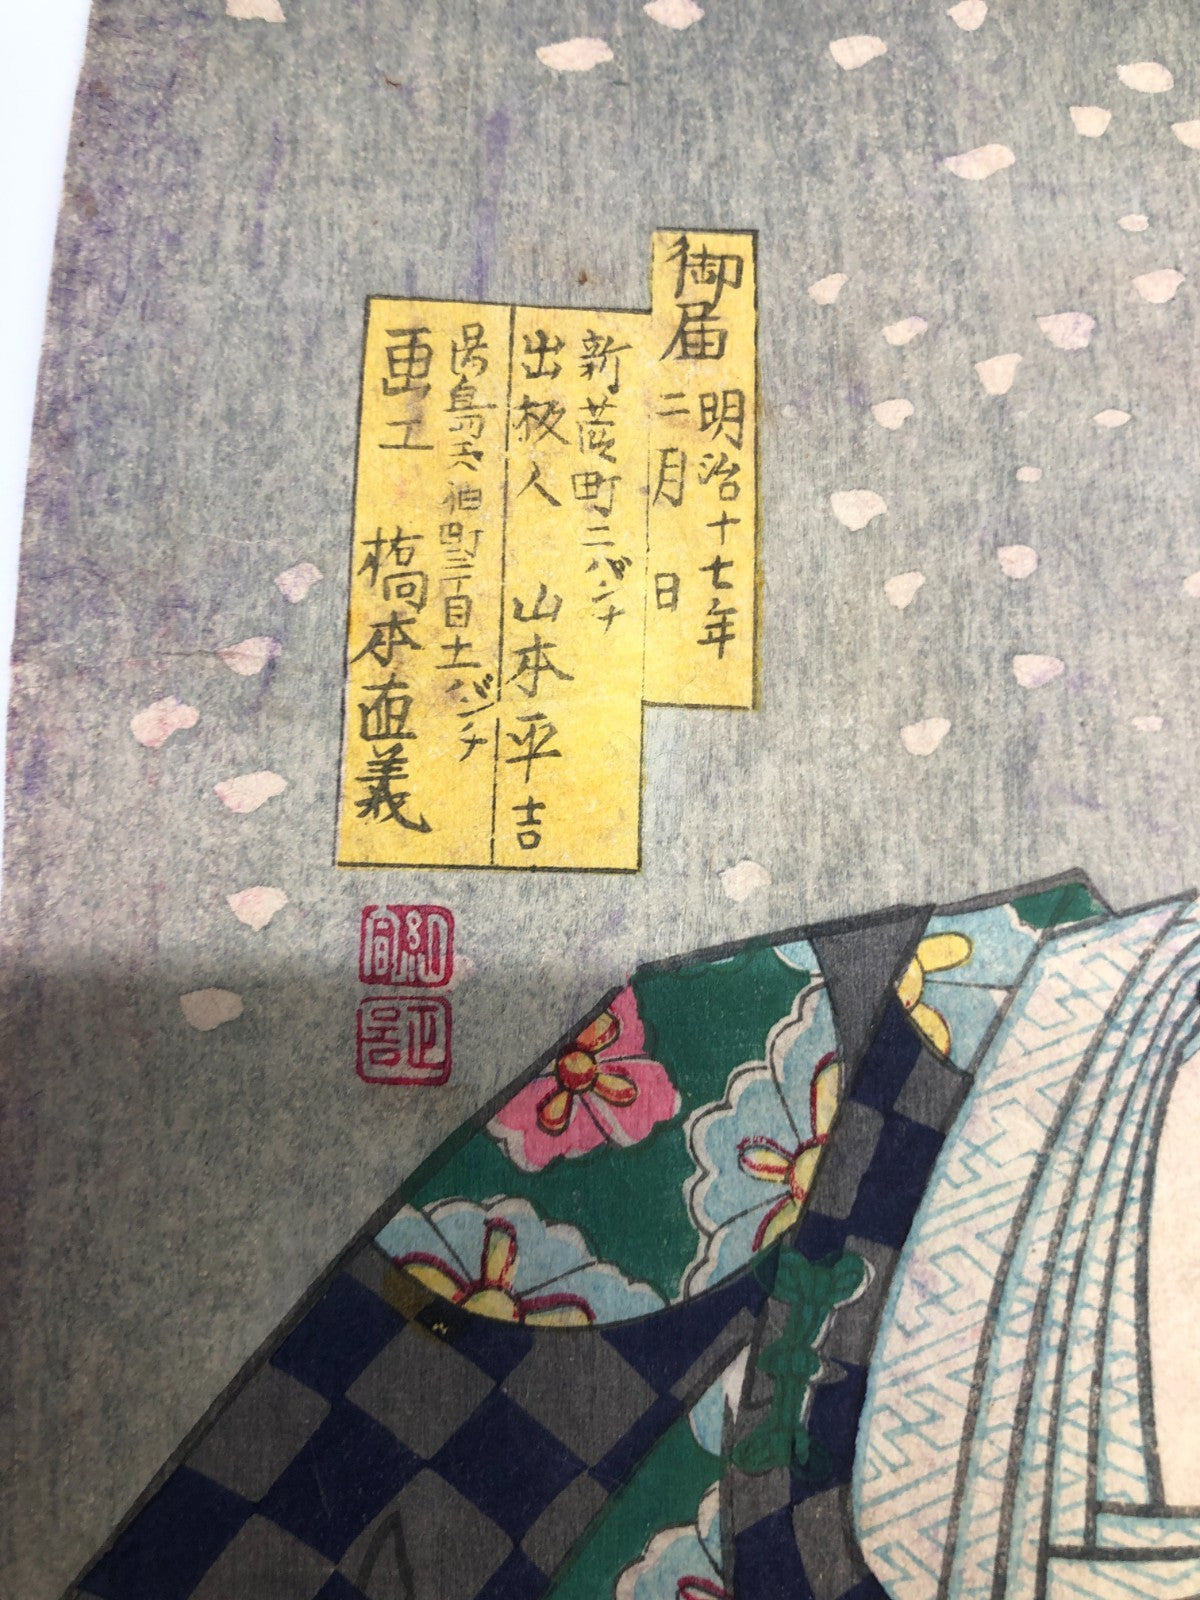 御届 明治十七年
二月 日
新葭町二バンチ
出板人 山本平吉
湯島天神町三丁目十一バンチ
画工 橋本直義